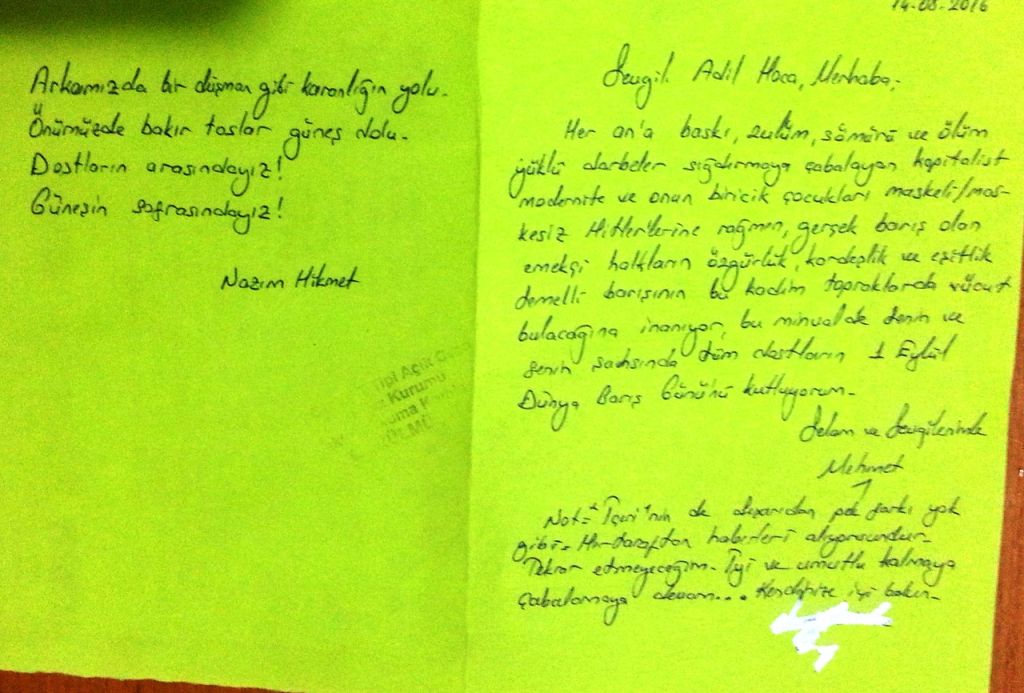 Arkamızda bir düşman gibi karanlığın yolu.
Önümüzde bakır taslar güneş dolu.
Dostların arasındayız!
Güneşin sofrasındayız!
Nazım Hikmet
Tipi Açık
Kurumu
14.08.2016
Sevgili Adil Hoca, Merhaba,
Her an'a baskı, zulüm, sömürü ve ölüm
yüklü darbeler sığdırmaya çabalayan kapitalist
modernite ve onun biricik çocukları maskeli/mas-
kesiz Hitler'lerine rağmen, gerçek barış olan
emekçi halkların özgürlük, kardeşlik ve eşitlik
temelli barışının bu kadim topraklarda vücut
bulacağına inanıyor, bu minvalde senin ve
senin şahsında tüm dostların 1 Eylül
Dünya Barış Günü'nü kutluyorum.
Selam ve Sevgilerimle
Mehmet
Not= "İçeri"nin de dışarıdan pek farkı yok
gibi. Her taraftan haberleri alıyorsundur.
Tekrar etmeyeceğim. İyi ve umutlu kalmaya
çabalamaya devam... Kendinize iyi bakın.